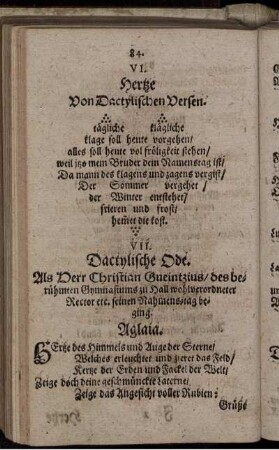 84.
VI.
Hertze
Von Dactylischen Versen.
tägliche klägliche
klage soll heute vorgehen/
alles soll heute vol fröligkeit stehen/
weil itzo mein Bruder dein Namenstag ist/
Da mann des klagens und zagens vergist/
Der Sommer vergehet/
der Winter entstehet/
frieren und frost/
hemmet die kost.
VII.
Dactylische Ode.
Als Herr Christian Gueintzius/ des be-
rühmten Gymnasiums zu Hall wohlverordneter
Rector etc. seinen Nahmenstag be-
ging.
Aglaia.
HErtze des Himmels und Auge der Sterne/
Welches erleuchtet und zieret das Feld/
Kertze der Erden und Fackel der Welt/
Zeige doch deine geschmünckte Laterne/
Zeige das Angesicht voller Rubien:
Grüße